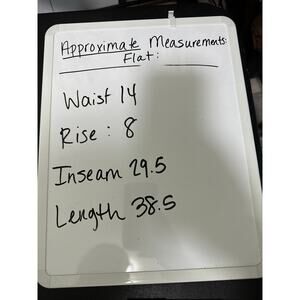 Approximate Measurements:
Flat:
Waist 14
Rise: 8
Inseam 29.5
Length 38.5